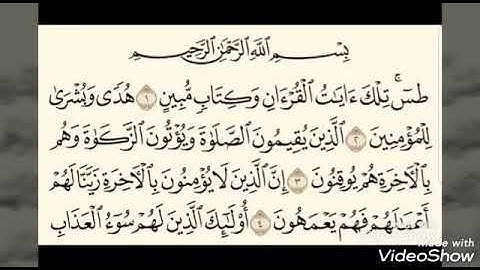 بِسْمِ اللَّهِ الرَّحْمَٰنِ الرَّحِيمِ
طسٓ ۚ تِلْكَ ءَايَٰتُ الْقُرْءَانِ وَكِتَابٍ مُّبِينٍ ١ هُدًى وَبُشْرَىٰ
لِلْمُؤْمِنِينَ ٢ الَّذِينَ يُقِيمُونَ الصَّلَوٰةَ وَيُؤْتُونَ الزَّكَوٰةَ وَهُم
بِالْءَاخِرَةِ هُمْ يُوقِنُونَ ٣ إِنَّ الَّذِينَ لَا يُؤْمِنُونَ بِالْءَاخِرَةِ زَيَّنَّا لَهُمْ
أَعْمَٰلَهُمْ فَهُمْ يَعْمَهُونَ ٤ أُوْلَٰٓئِكَ الَّذِينَ لَهُمْ سُوٓءُ الْعَذَابِ
Made with
VideoShow